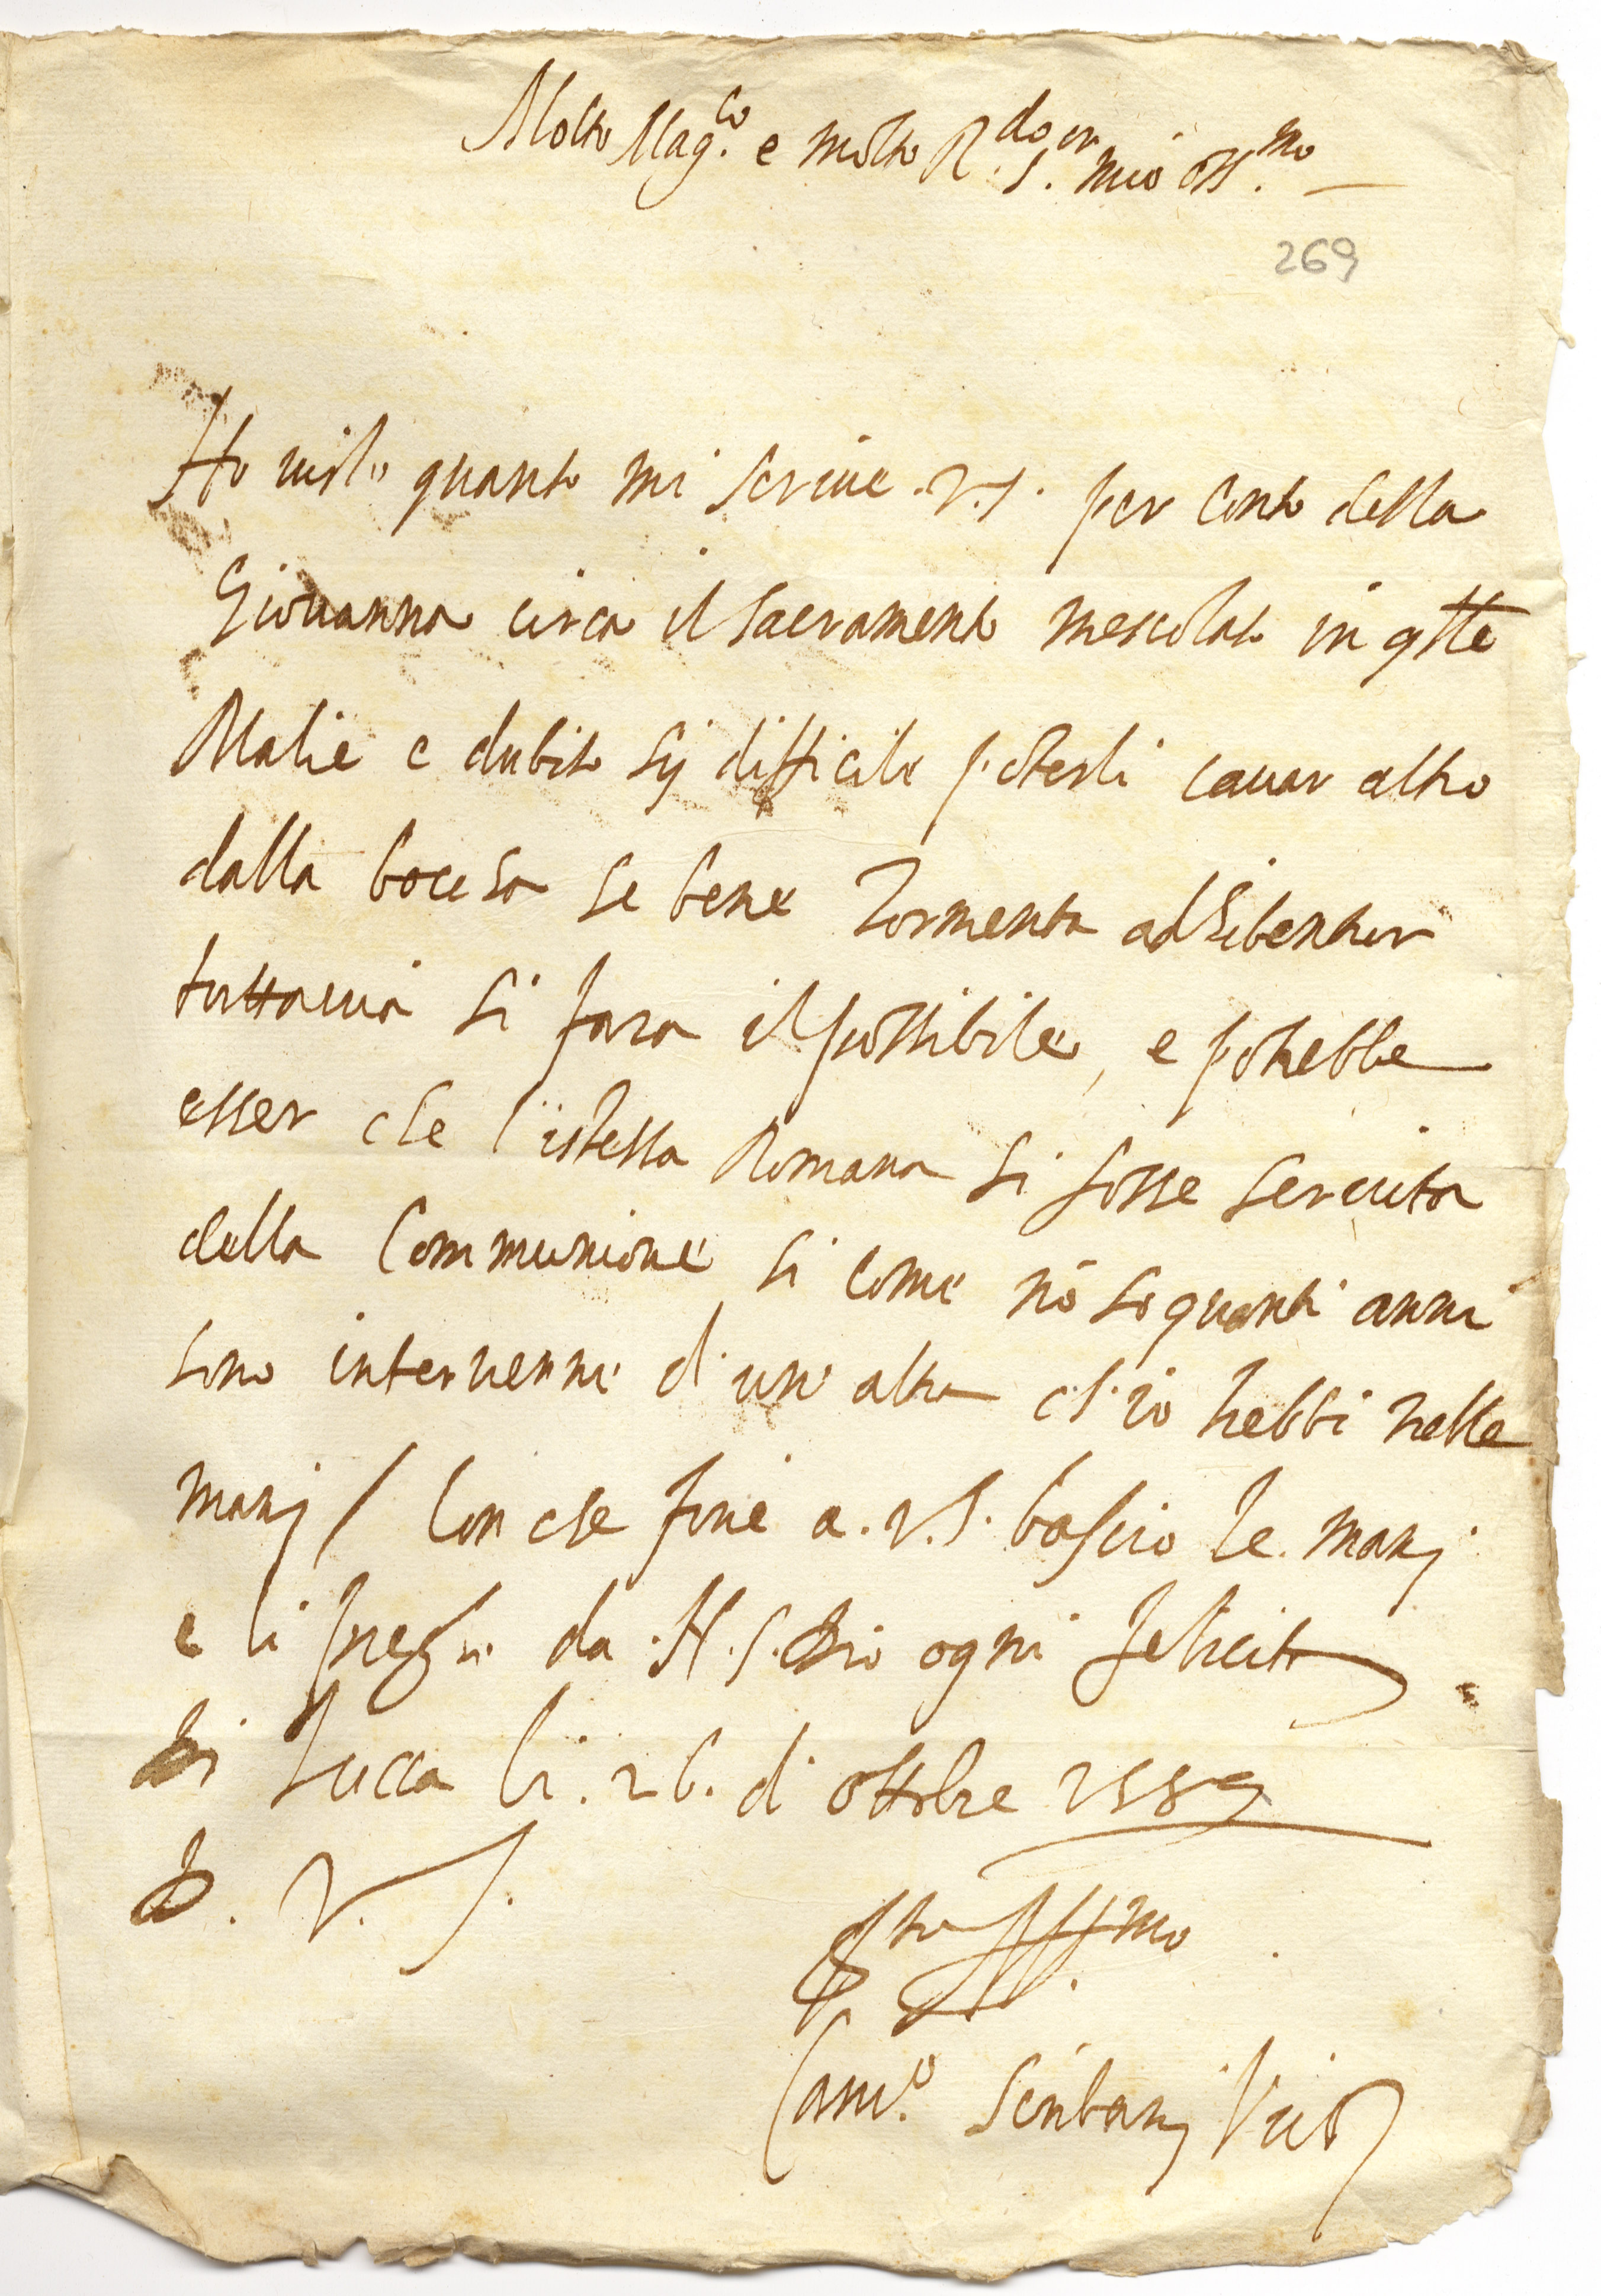 Molto Mag.co e molto R.do S.or mio oss.mo
269
Ho uisto quanto mi scriue .V.S. per conto della
Giouanna circa il sacramento mescolato in q̄lle
Malie e dubito sij difficile poterli cauar altro
dalla bocca se bene tormenta adhibentur
tuttauia si fara il possibile, e potrebbe
esser che l'istessa Romana si fosse seruita
della Communione si come nō so quanti anni
sono interuenne d'un altra ch'io hebbi nelle
manj / Con che fine a .V.S. bascio le manj
e li prego da .N.S. Dio ogni felicita
Di Lucca li .26. di ottobre 1589
D. V. S.
Camo. Scribanj Vic.o